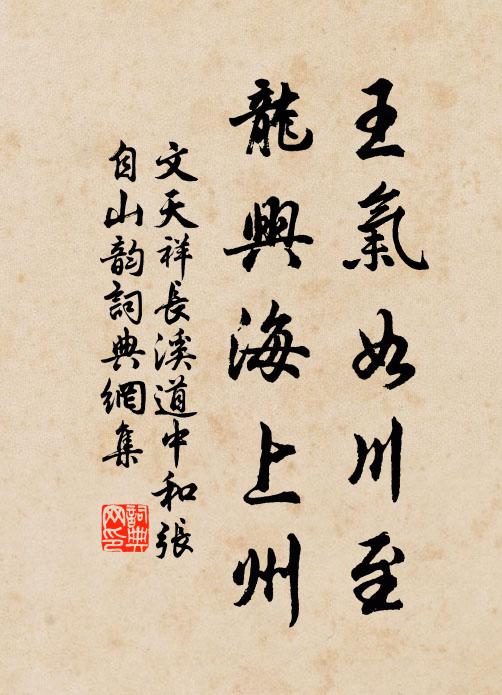 王氣如川至
龍興海上州
文天祥長溪道中和張
自山韵詞典網集
詞典
网印